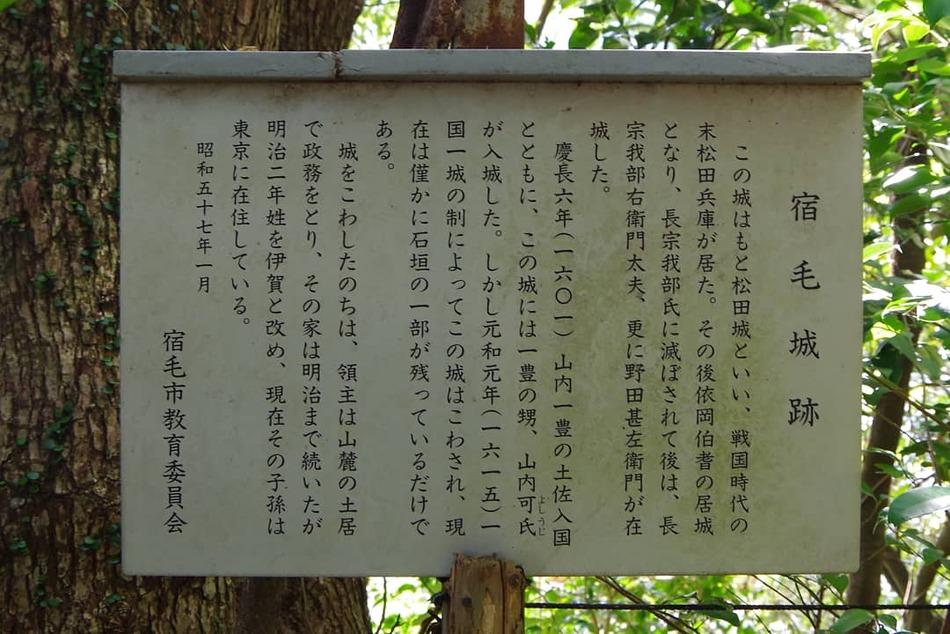 宿毛城跡
この城はもと松田城といい、戦国時代の
末松田兵庫が居た。その後依岡伯耆の居城
となり、長宗我部氏に滅ぼされて後は、長
宗我部右衛門太夫、更に野田甚左衛門が在
城した。
慶長六年(一六〇一)山内一豊の土佐入国
とともに、この城には一豊の甥、山内可氏
よしうじ
が入城した。しかし元和元年(一六一五)一
国一城の制によってこの城はこわされ、現
在は僅かに石垣の一部が残っているだけで
ある。
城をこわしたのちは、領主は山麓の土居
で政務をとり、その家は明治まで続いたが
明治二年姓を伊賀と改め、現在その子孫は
東京に在住している。
昭和五十七年一月
宿毛市教育委員会